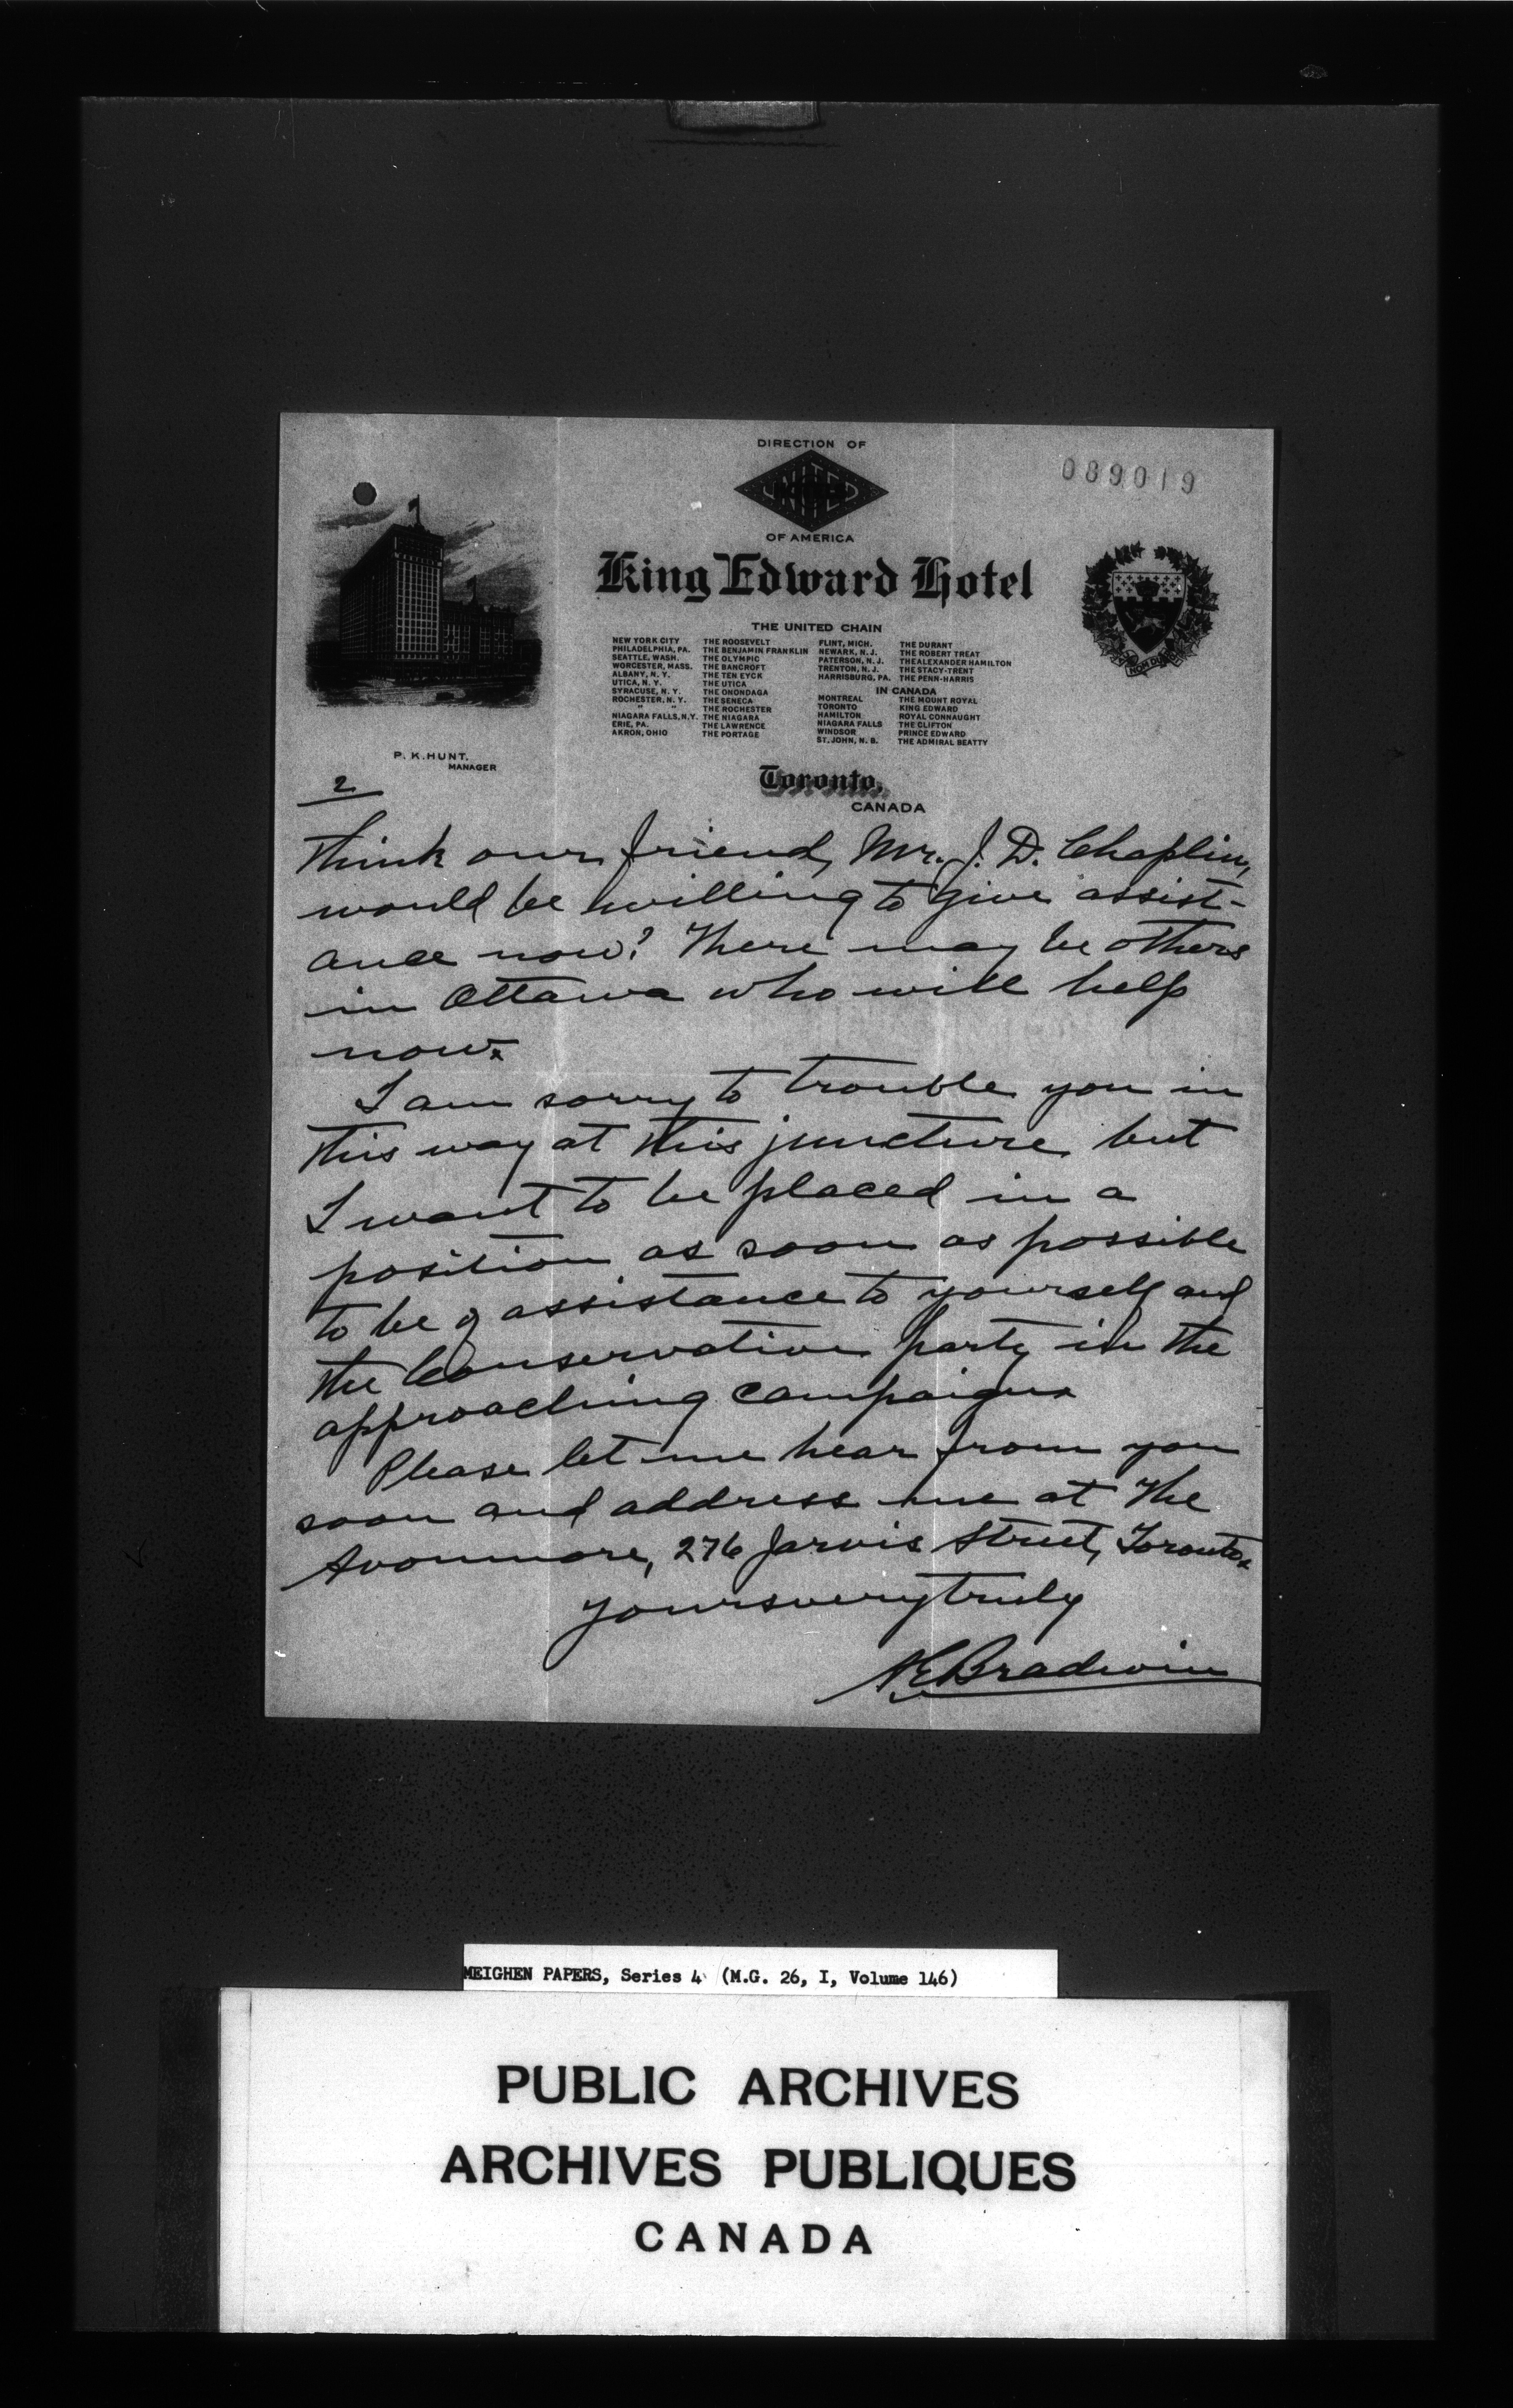 DIRECTION OF
UNITED
OF AMERICA
089019
King Edward Hotel
THE UNITED CHAIN
NEW YORK CITY THE ROOSEVELT
PHILADELPHIA, PA. THE BENJAMIN FRANKLIN
SEATTLE, WASH. THE OLYMPIC
WORCESTER, MASS. THE BANCROFT
ALBANY, N. Y. THE TEN EYCK
UTICA, N. Y. THE UTICA
SYRACUSE, N. Y. THE ONONDAGA
ROCHESTER, N. Y. THE SENECA
" " THE ROCHESTER
NIAGARA FALLS, N.Y. THE NIAGARA
ERIE, PA. THE LAWRENCE
AKRON, OHIO THE PORTAGE
FLINT, MICH. THE DURANT
NEWARK, N. J. THE ROBERT TREAT
PATERSON, N. J. THE ALEXANDER HAMILTON
TRENTON, N. J. THE STACY-TRENT
HARRISBURG, PA. THE PENN-HARRIS
IN CANADA
MONTREAL THE MOUNT ROYAL
TORONTO KING EDWARD
HAMILTON ROYAL CONNAUGHT
NIAGARA FALLS THE CLIFTON
WINDSOR PRINCE EDWARD
ST. JOHN, N. B. THE ADMIRAL BEATTY
P. K. HUNT.
MANAGER
Toronto,
CANADA
2
think our friend, Mr. J. D. Chaplin,
would be willing to give assist-
ance now? There may be others
in Ottawa who will help
now.
I am sorry to trouble you in
this way at this juncture but
I want to be placed in a
position as soon as possible
to be of assistance to yourself and
the Conservative party in the
approaching campaign.
Please let me hear from you
soon and address me at The
Avonmore, 276 Jarvis Street, Toronto.
Yours very truly
Bradwin
MEIGHEN PAPERS, Series 4 (M.G. 26, I, Volume 146)
PUBLIC ARCHIVES
ARCHIVES PUBLIQUES
CANADA